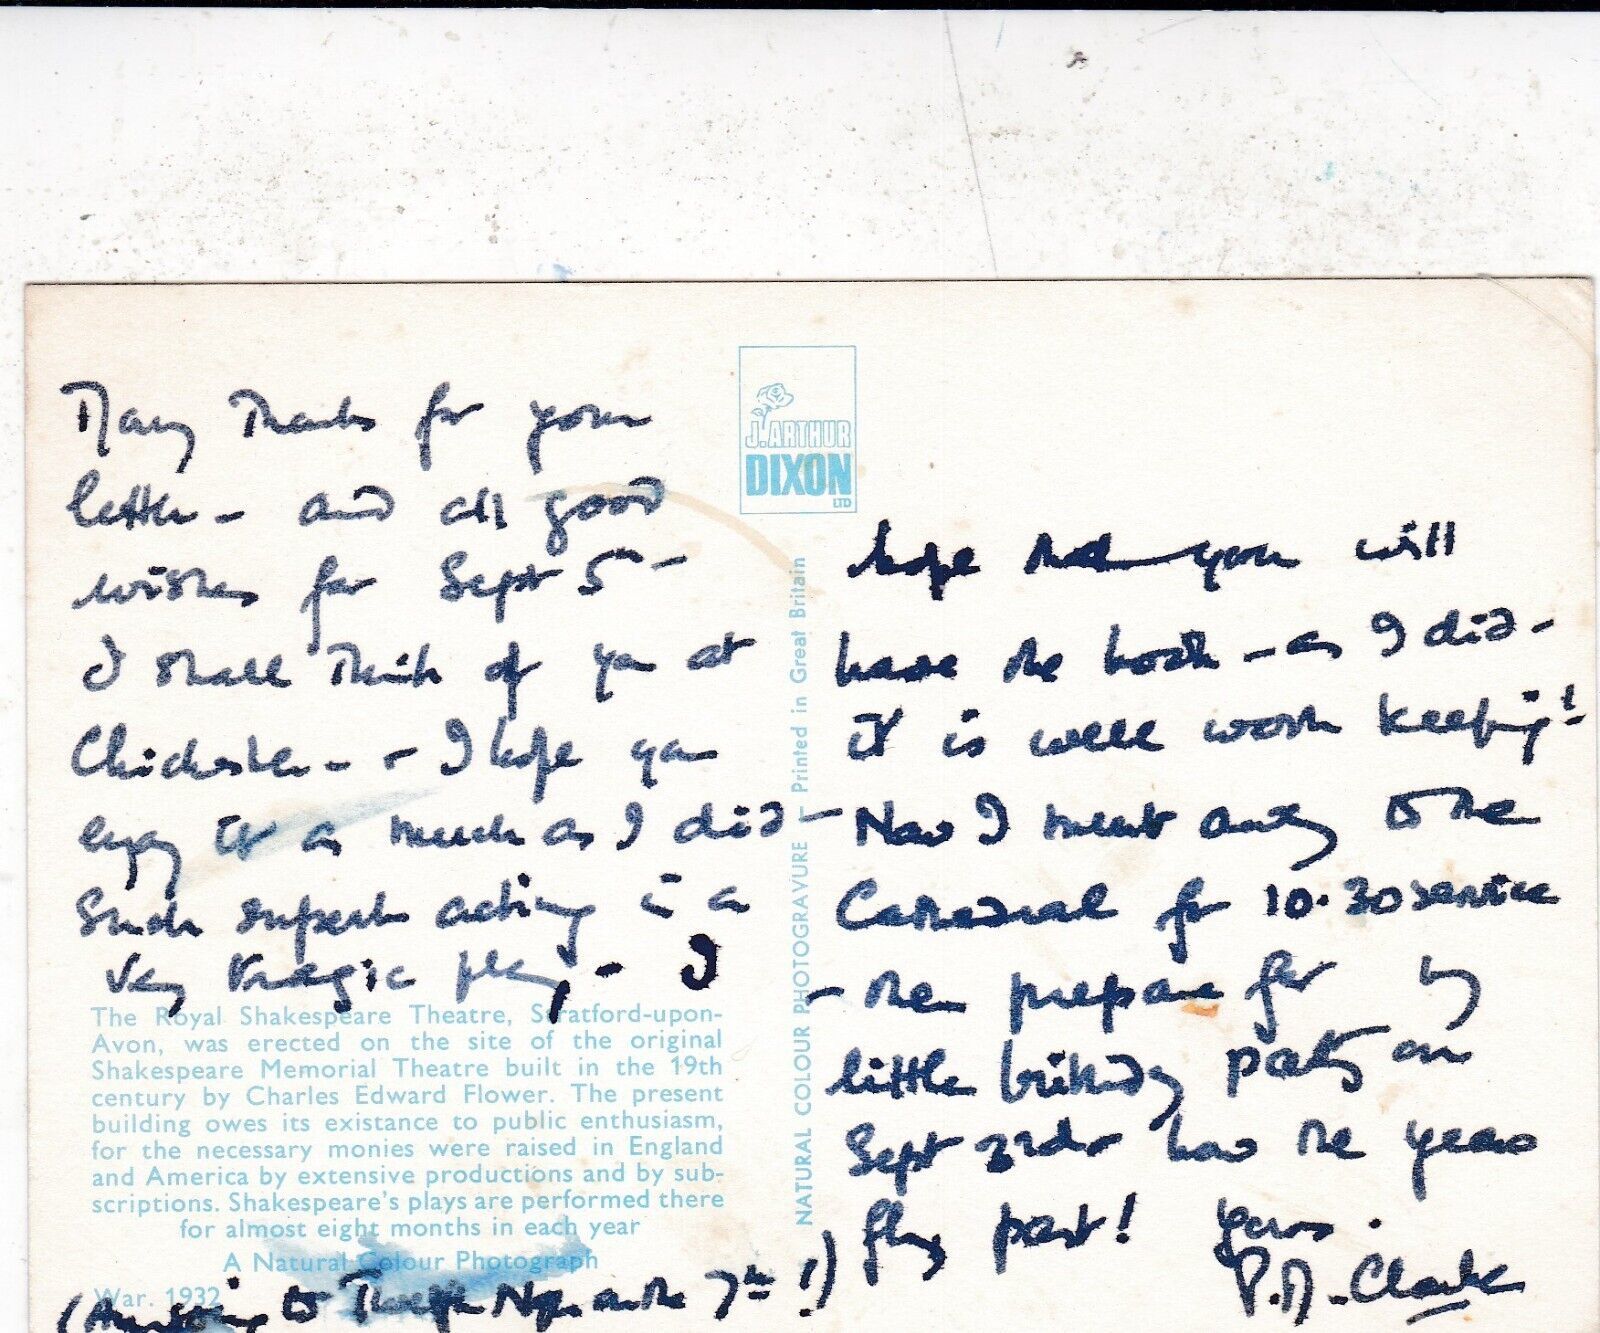 Many Thanks for your
letter - and all good
wishes for Sept 5 -
I shall think of you at
Chichester - - I hope you
enjoy it as much as I did -
Such superb acting in a
very tragic play, - I
hope that you will
have the book - as I did -
it is well worth keeping!
Now I must away to the
Cathedral for 10.30 service
- then prepare for my
little birthday party on
Sept 3rd - how the years
fly past! Yours.
P.D. Clarke
(Am going to Night on the 7th!)
J. ARTHUR
DIXON
LTD
NATURAL COLOUR PHOTOGRAVURE - Printed in Great Britain
The Royal Shakespeare Theatre, Stratford-upon-
Avon, was erected on the site of the original
Shakespeare Memorial Theatre built in the 19th
century by Charles Edward Flower. The present
building owes its existance to public enthusiasm,
for the necessary monies were raised in England
and America by extensive productions and by sub-
scriptions. Shakespeare's plays are performed there
for almost eight months in each year
A Natural Colour Photograph
War. 1932